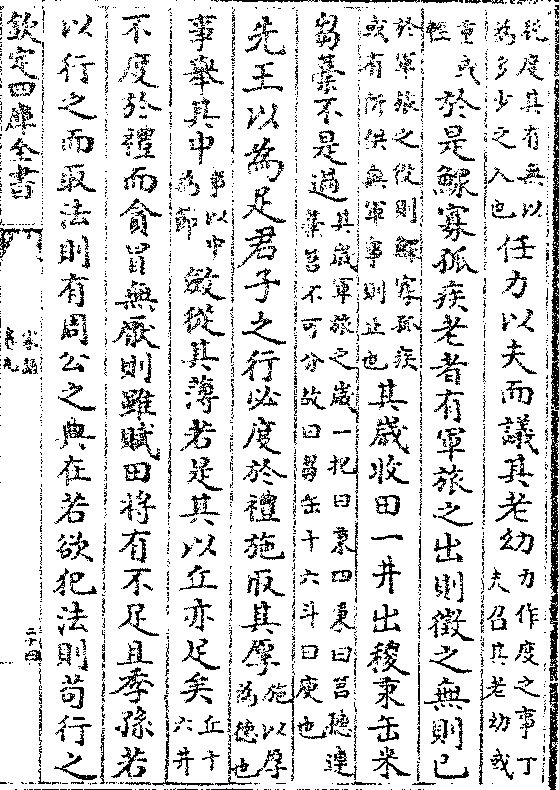 税度其有無以為多少之入也任力以夫而議其老幼力作度之事丁夫召其老幼或
重或輕於是鰥寡孤疾老者有軍旅之出則徵之無則已
於軍旅之役則鰥寡孤疾或有所供無軍事則止也其歳收田一井出稯秉缶米
芻藁不是過其歳軍旅之歳一把曰秉四秉曰筥穗連藁筥不可分故曰芻缶十六斗曰庾也
先王以為足君子之行必度於禮施取其厚施以厚為德也
事舉其中事以中為節斂從其薄若是其以丘亦足矣丘十六井
不度於禮而貪冒無厭則雖賦田將有不足且季孫若
以行之而取法則有周公之典在若欲犯法則苟行之
欽定四庫全書
家語
卷九
二十四